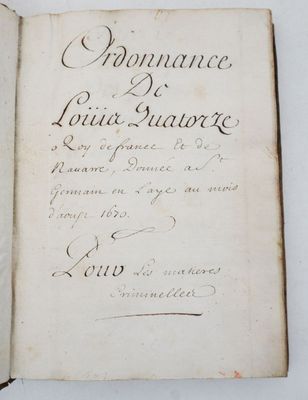 Ordonnance
De
Loüis Quatorze
Roy de france Et de
Navarre, Donnée a St.
Germain en Laye au mois
d'aoust 1670.
Pour Les matieres
Criminelles